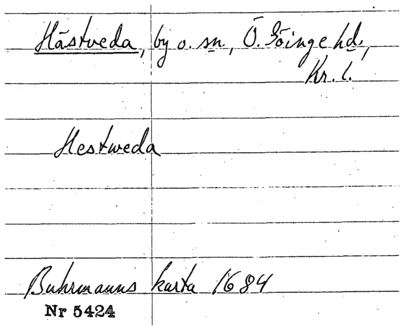 Hästveda, by o. sn, Ö. Göinge hd,
Kr. l.
Hestweda
Buhrmanns karta 1684
Nr 5424